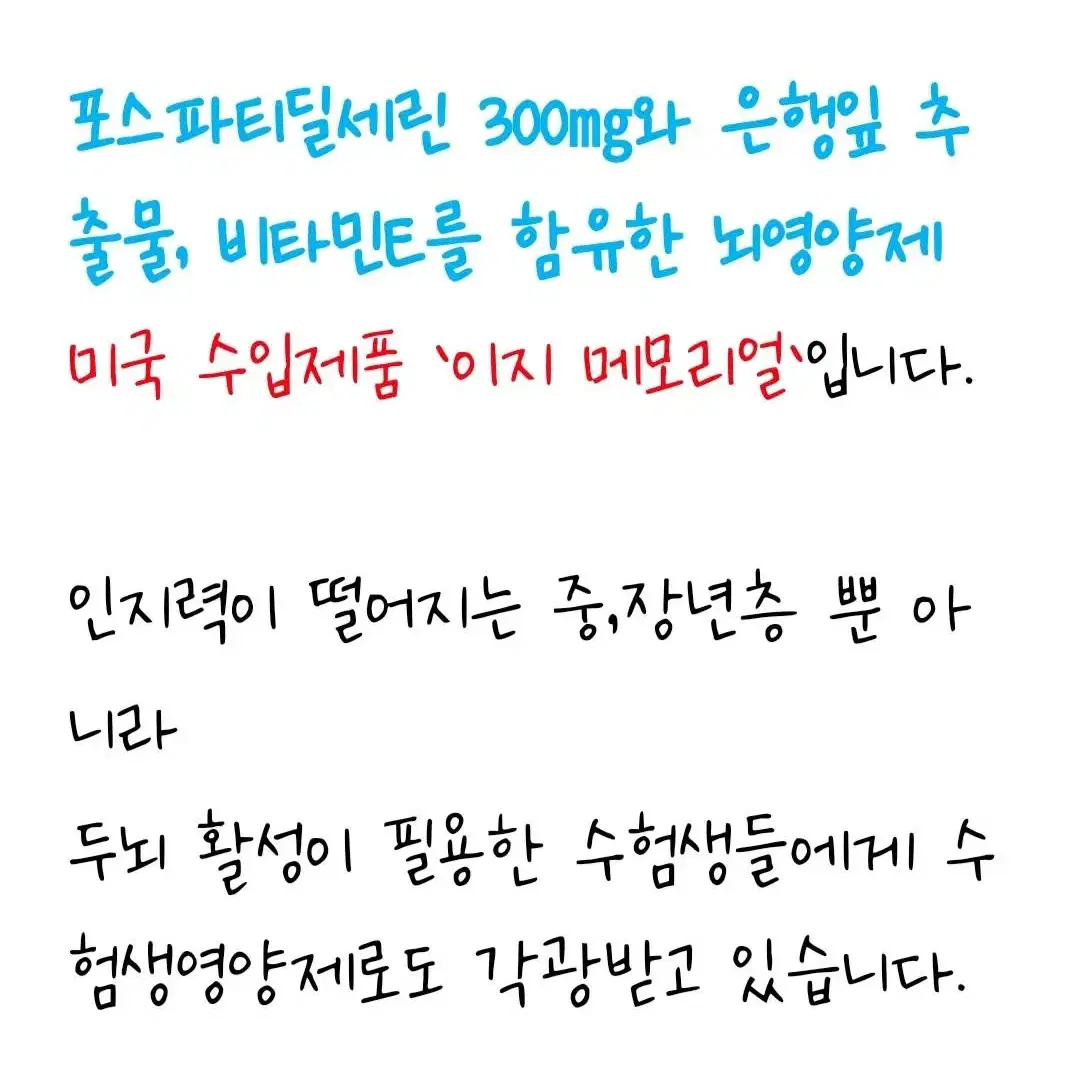 포스파티딜세린 300mg와 은행잎 추
출물, 비타민E를 함유한 뇌영양제
미국 수입제품 '이지 메모리얼'입니다.
인지력이 떨어지는 중,장년층 뿐 아
니라
두뇌 활성이 필요한 수험생들에게 수
험생영양제로도 각광받고 있습니다.